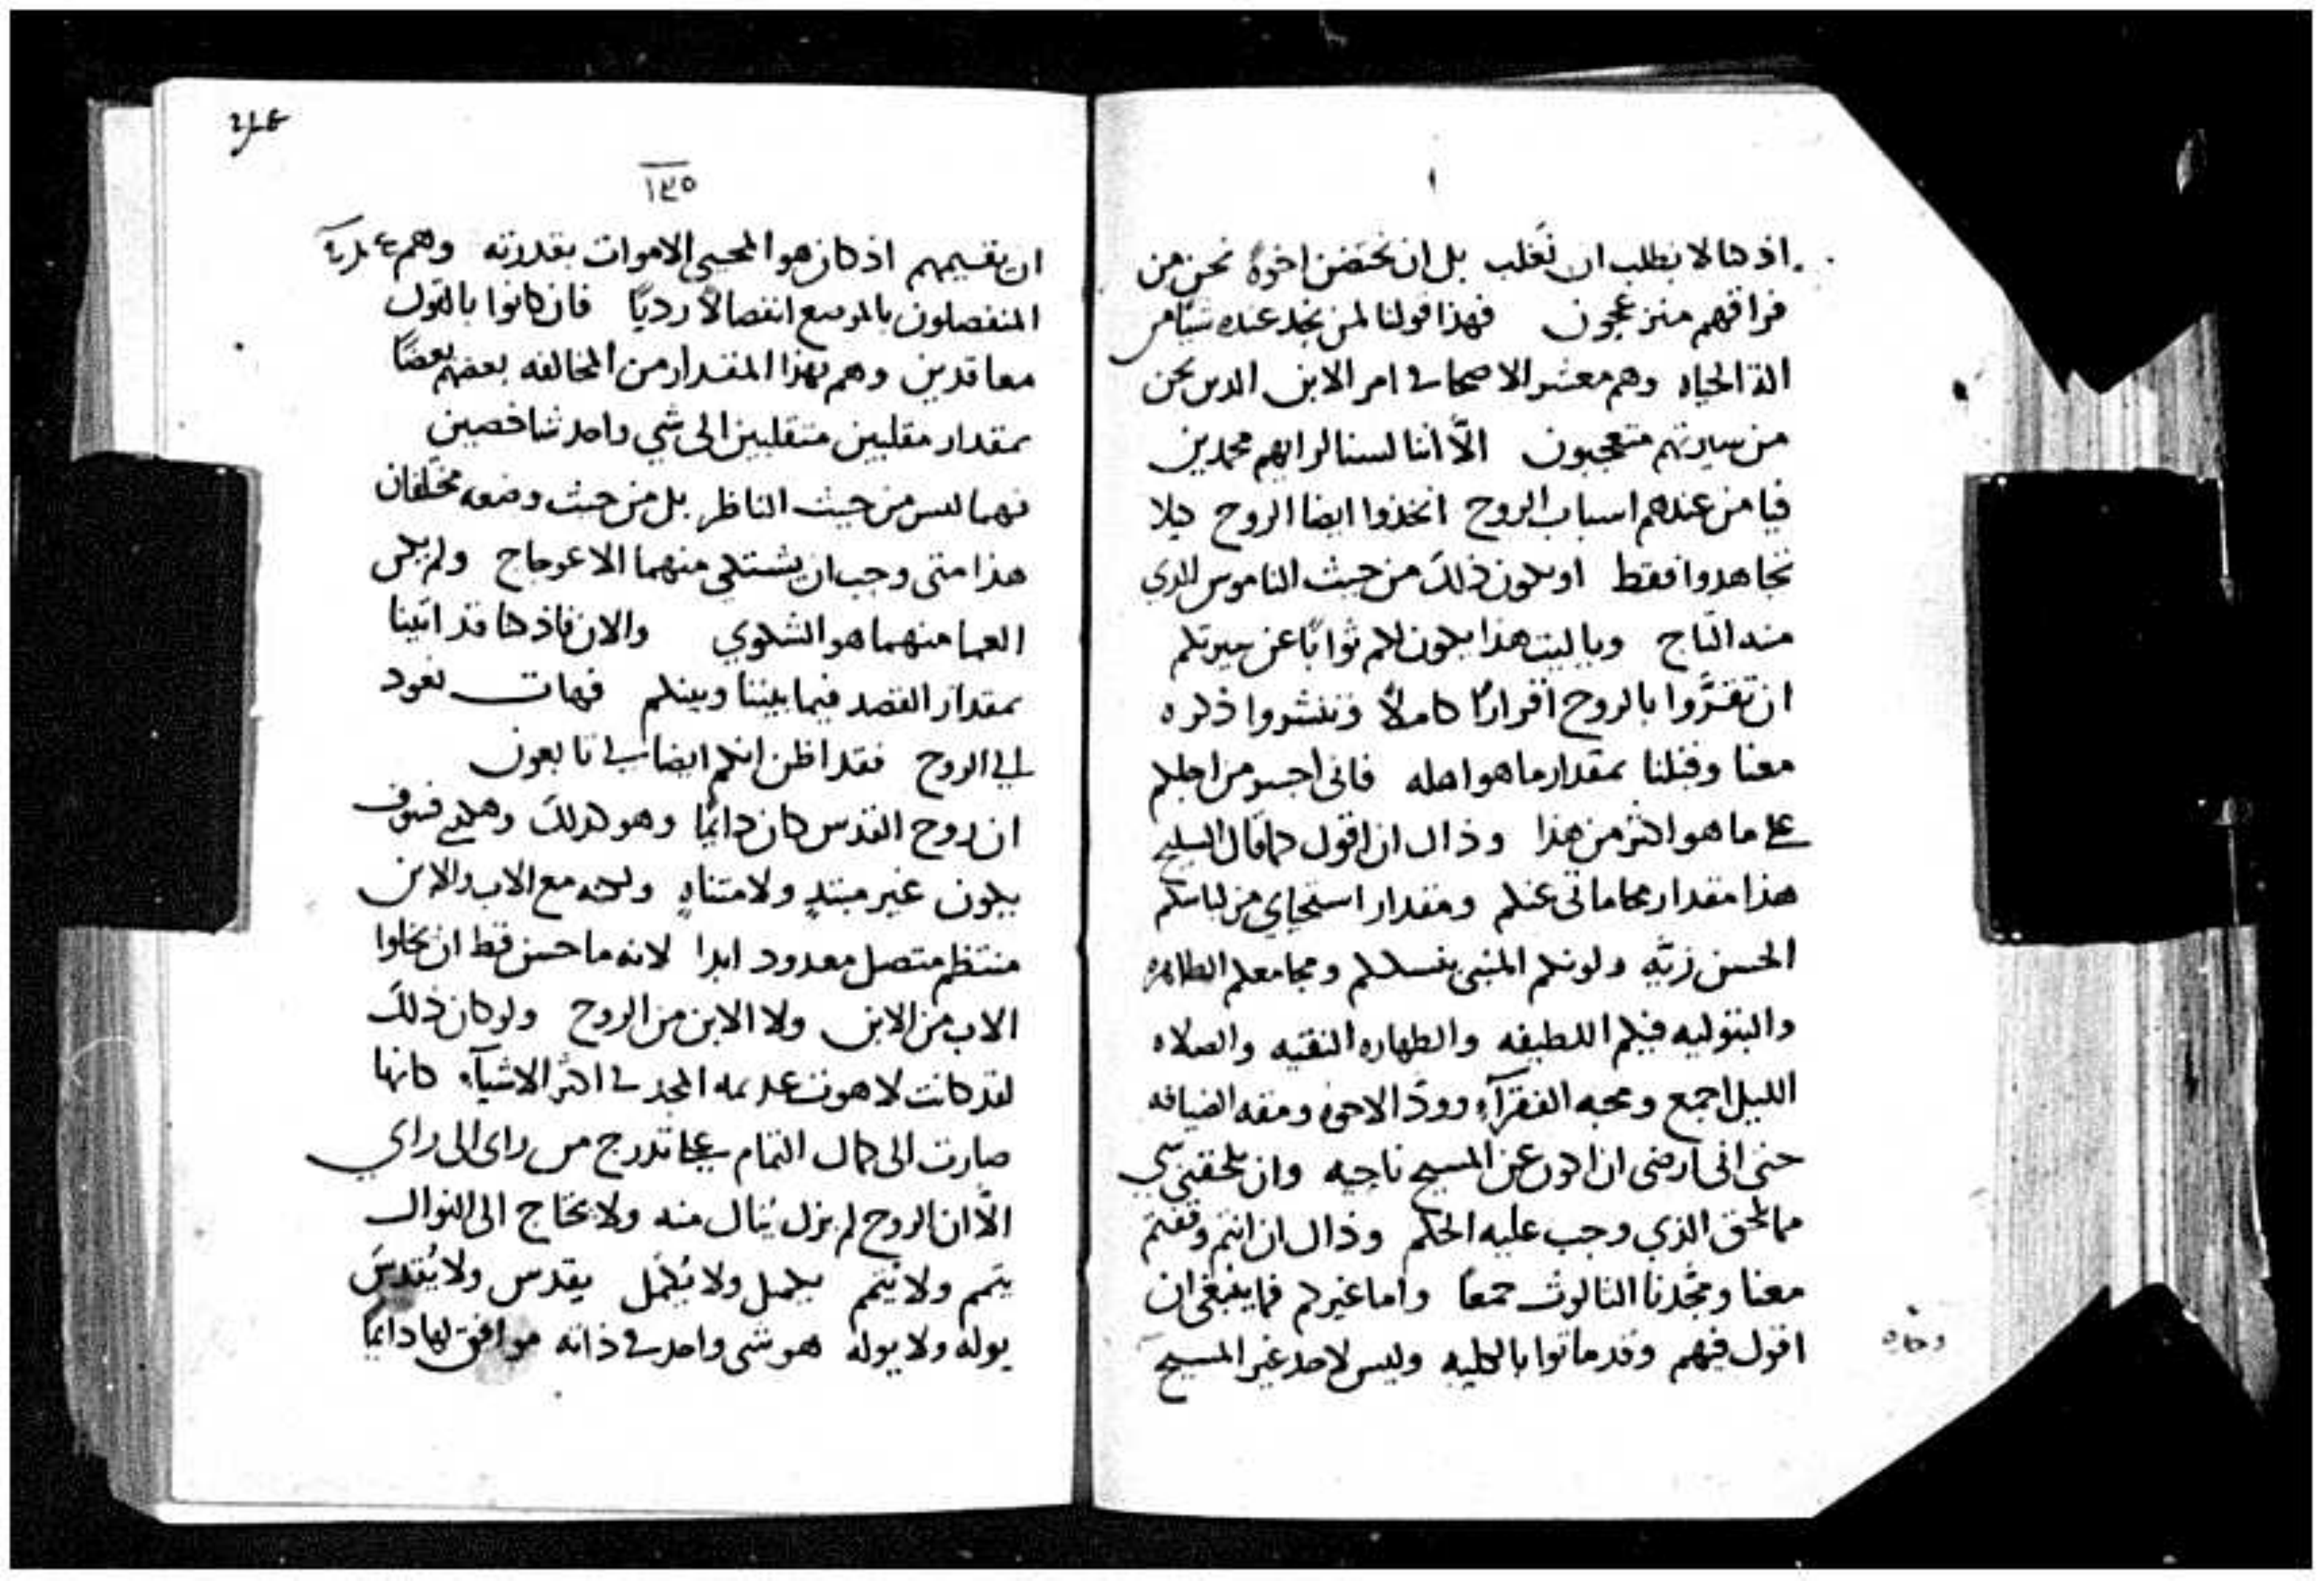 اذ كنا لا نطلب ان نَغلب بل ان نحتضن اخوةً نحن من
فراقهم منزعجون فهذا قولنا لمن نجد عنده شيًا من
الة الحياه وهم معشر الاصحا في امر الابن الدين نحن
من سيرتهم متعجبون الّا اننا لسنا لرايهم محمدين
فيا من عندهم اسباب الروح اتخذوا ايضا الروح كيلا
تجاهدوا فقط او يكون ذلك من حيث الناموس الدي
منه التاج ويا ليت هذا يكون لكم ثوابًا عن سيرتكم
ان تقرَّوا بالروح اقرارًا كاملًا وتنشروا ذكره
معنا وقبلنا بمقدار ما هو اهله فانى اجسر من اجلكم
على ما هو اكثر من هذا وذاك ان اقول كما قال السليح
هذا مقدار محاماتى عنكم ومقدار استحياي من لباسكم
الحسن زيّه ولونكم المنبى بنسككم ومجامعكم الطاهره
والبتوليه فيكم اللطيفه والطهاره النقيه والصلاه
الليل اجمع ومحبه الفقرآء وودّ الاخوه ومقه الضيافه
حتى انى ارضى ان اكون عن المسيح ناحيه وان يلحقني شي
مما لحق الذي وجب عليه الحكم وذاك ان انتم وقفتم
معنا ومجّدنا الثالوث جمعًا واما غيركم فما ينبغى ان
اقول فيهم وقد ماتوا بالكليه وليس لاحد غير المسيح
١٣٥
ان يقسيمهم اذ كان هو المحيى الاموات بقدرته وهم
المنفصلون بالموضع انفصالًا رديًا فان كانوا بالقول
معاقدين وهم بهذا المقدار من المخالفه بعضهم بعضًا
بمقدار مقلبين منقلبين الى شي واحد شاخصين
فهما ليس من حيث الناظر بل من حيث وضعه مختلفان
هذا متى وجب ان يشتكى منهما الاعوجاج ولم يكن
العما منهما هو الشكوي والان فاذ كنا قد اتينا
بمقدار القصد فيما بيننا وبينكم فهات نعود
الي الروح فقد اظن انكم ايضا لى تابعون
ان روح القدس كان دائمًا وهو كذلك وهكدي فسوف
يكون غير مبتدٍ ولا متناهٍ ولكنه مع الاب والابن
منتظم متصل معدود ابدا لانه ما حسن قط ان يخلوا
الاب من الابن ولا الابن من الروح ولو كان ذلك
لقد كانت لاهوت عديمه المجد في اكثر الاشيآء كانها
صارت الى كمال التمام على تدرج من راى الى راي
الّا ان الروح لم يزل يُنال منه ولا يحتاج الى النوال
يتمم ولا يُتمم يكمل ولا يُكمّل يقدس ولا يُقدسَ
يوله ولا يوله هو شى واحد في ذاته موافق لها دائمًا